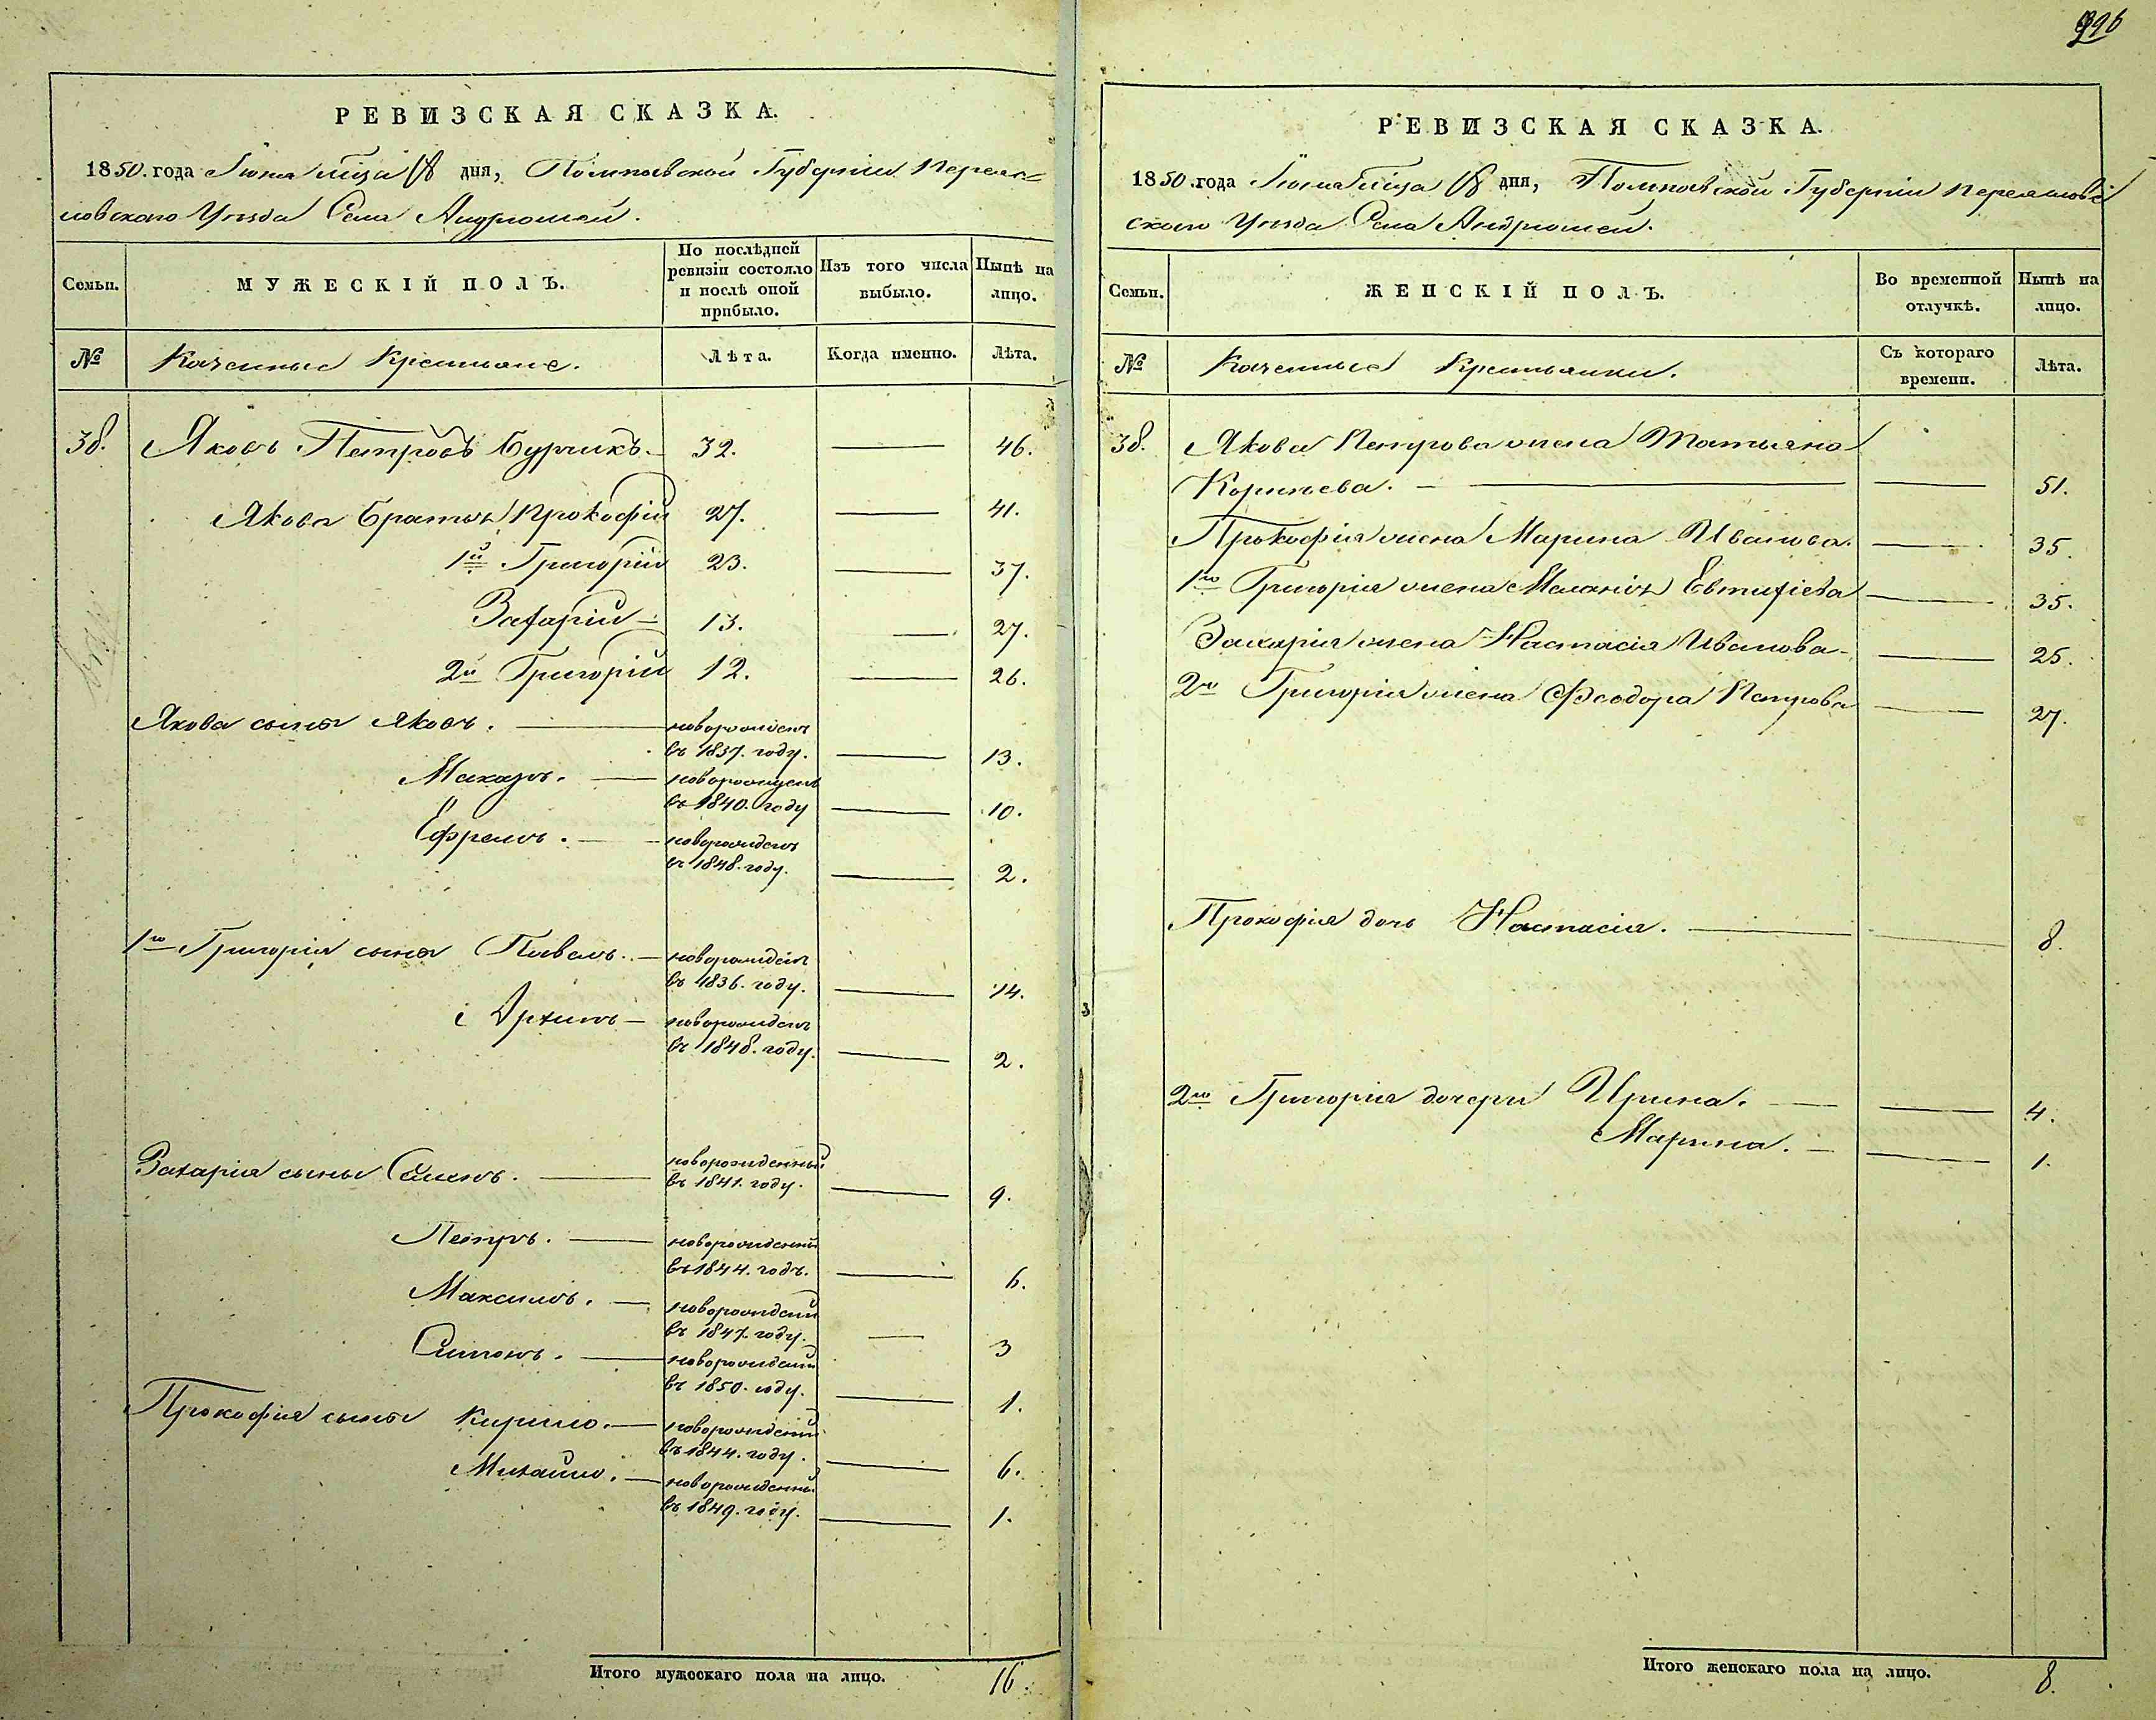 996
РЕВИЗСКАЯ СКАЗКА.
1850. года Іюня м̃ца 18 дня, Полтавской Губерніи Переяс=
ловского Уѣзда Села Андрюшей.
Семьи.
МУЖЕСКІЙ ПОЛЪ.
По послѣдней ревизіи состояло и послѣ оной прибыло.
Изъ того числа выбыло.
Нынѣ на лицо.
№
Казенные Крестьяне.
Лѣта.
Когда именно.
Лѣта.
38. Яковъ Петровъ Бурчикъ. 32. — 46.
Якова Братья Прокофій 27. — 41.
1й Григорій 23. — 37.
Захарій — 13. — 27.
2й Григорій 12. — 26.
Якова сыны Яковъ. — новорожденъ
въ 1837. году. — 13.
Макаръ. — новорожденъ
въ 1840. году — 10.
Ефремъ. — новорожденъ
въ 1848. году. — 2.
1го Григорія сыны Павелъ. — новорожденъ
въ 1836. году. — 14.
и Архипъ — новорожденъ
въ 1848. году. — 2.
Захарія сыны Семенъ. — новорожденный
въ 1841. году. — 9.
Петръ. — новорожденный
въ 1844. годъ. — 6.
Максимъ. — новорожденный
въ 1847. году. — 3
Симонъ. — новорожденный
въ 1850. году. — 1.
Прокофія сыны Кирило. — новорожденный
въ 1844. году. — 6.
Михайло. — новорожденный
въ 1849. году. — 1.
Итого мужескаго пола на лицо. 16.
РЕВИЗСКАЯ СКАЗКА.
1850. года Іюня м̃ца 18 дня, Полтавской Губерніи Переяслов
ского Уѣзда Села Андрюшей.
Семьи.
ЖЕНСКІЙ ПОЛЪ.
Во временной отлучкѣ.
Нынѣ на лицо.
№
Казенные Крестьянки.
Съ котораго времени.
Лѣта.
38. Якова Петрова жена Татьяна
Корнѣева. — — 51.
Прокофія жена Марина Иванова. — 35.
1го Григорія жена Меланія Евтифіева — 35.
Захарія жена Настасія Иванова — 25.
2го Григорія жена Феодора Петрова — 27.
Прокофія дочь Настасія. — — 8.
2го Григорія дочери Ирина. — — 4.
Марина. — — 1.
Итого женскаго пола на лицо. 8.